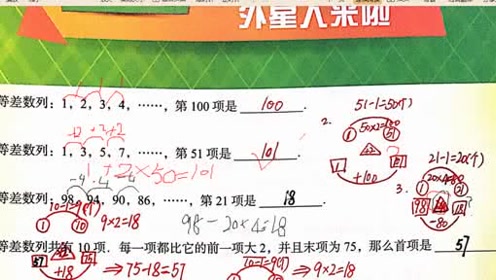 外星人来啦
等差数列：1，2，3，4，……，第 100 项是 100 .
51-1=50(个)
2.
50×2=100
1 51
+2 +2 +2
等差数列：1，3，5，7，……，第 51 项是 101 .
1+2×50=101
1
+100
21-1=20(个)
3.
20×4=80
1 21
98
-80
-4 -4
等差数列：98，94，90，86，……，第 21 项是 18 .
10-1=9(个)
1 10
9×2=18
98-20×4=18
等差数列共有 10 项，每一项都比它的前一项大 2，并且末项为 75，那么首项是 57
57 75
+18
⇒75-18=57
10-1=9(个)
1 10
⇒9×2=18